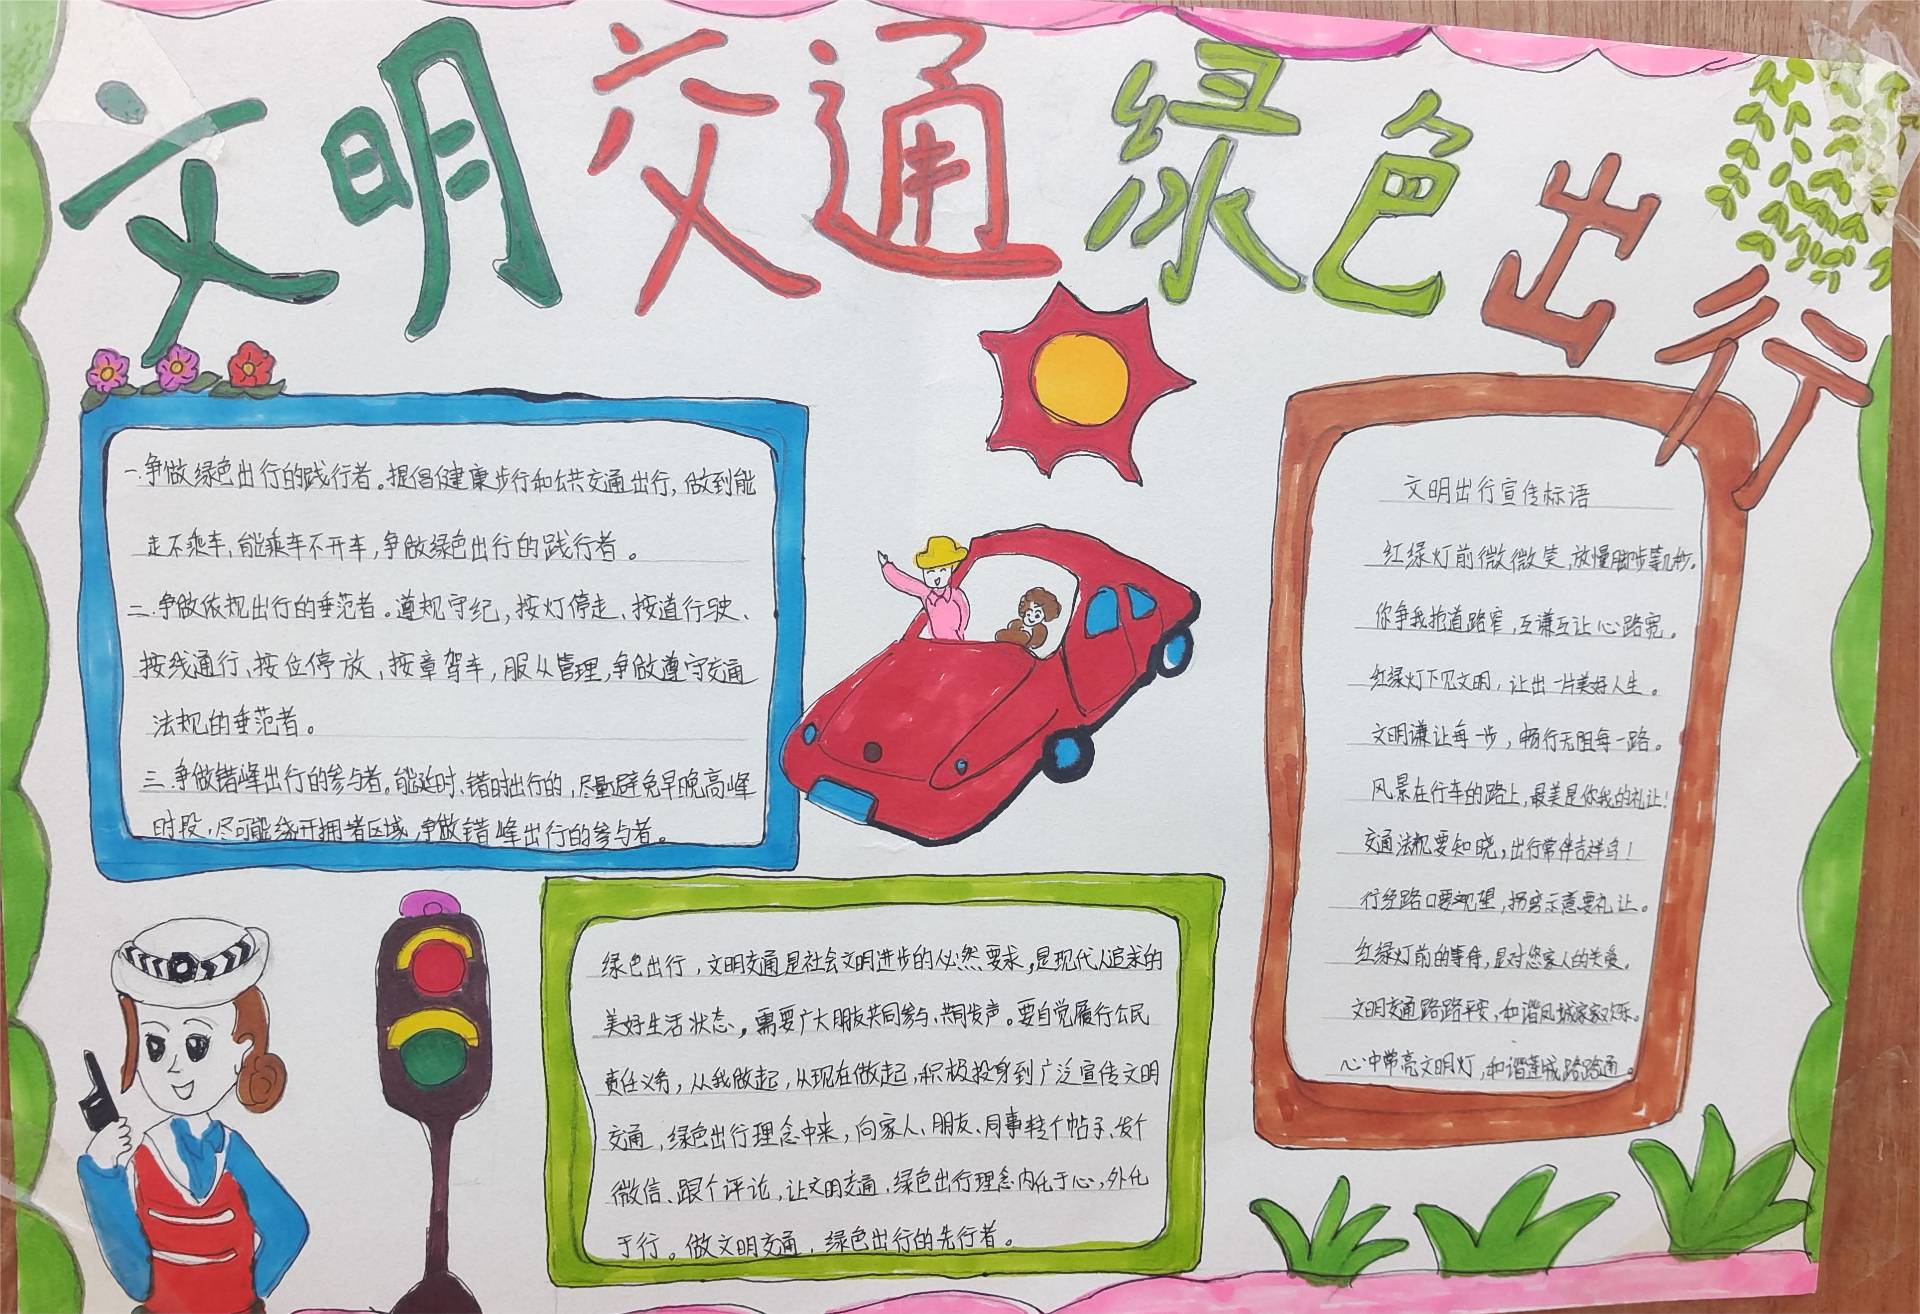 文明交通绿色出行
一.争做绿色出行的践行者。提倡健康步行和公共交通出行,做到能
走不乘车,能乘车不开车,争做绿色出行的践行者。
二.争做依规出行的垂范者。遵规守纪,按灯停走、按道行驶、
按线通行、按位停放,按章驾车,服从管理,争做遵守交通
法规的垂范者。
三.争做错峰出行的参与者。能延时、错时出行的,尽量避免早晚高峰
时段,尽可能绕开拥堵区域,争做错峰出行的参与者。
绿色出行,文明交通是社会文明进步的必然要求,是现代人追求的
美好生活状态,需要广大朋友共同参与、共同发声。要自觉履行公民
责任义务,从我做起,从现在做起,积极投身到广泛宣传文明
交通,绿色出行理念中来,向家人、朋友、同事转个帖子、发个
微信、跟个评论,让文明交通,绿色出行理念内化于心,外化
于行。做文明交通,绿色出行的先行者。
文明出行宣传标语
红绿灯前微微笑,放慢脚步等几秒。
你争我抢道路窄,互谦互让心路宽。
红绿灯下见文明,让出一片美好人生。
文明谦让每一步,畅行无阻每一路。
风景在行车的路上,最美是你我的礼让!
交通法规要知晓,出行常伴吉祥鸟!
行经路口要观望,拐弯示意要礼让。
红绿灯前的等待,是对您家人的关爱。
文明交通路路平安,和谐凤城家家欢乐。
心中常亮文明灯,和谐莲城路路通。